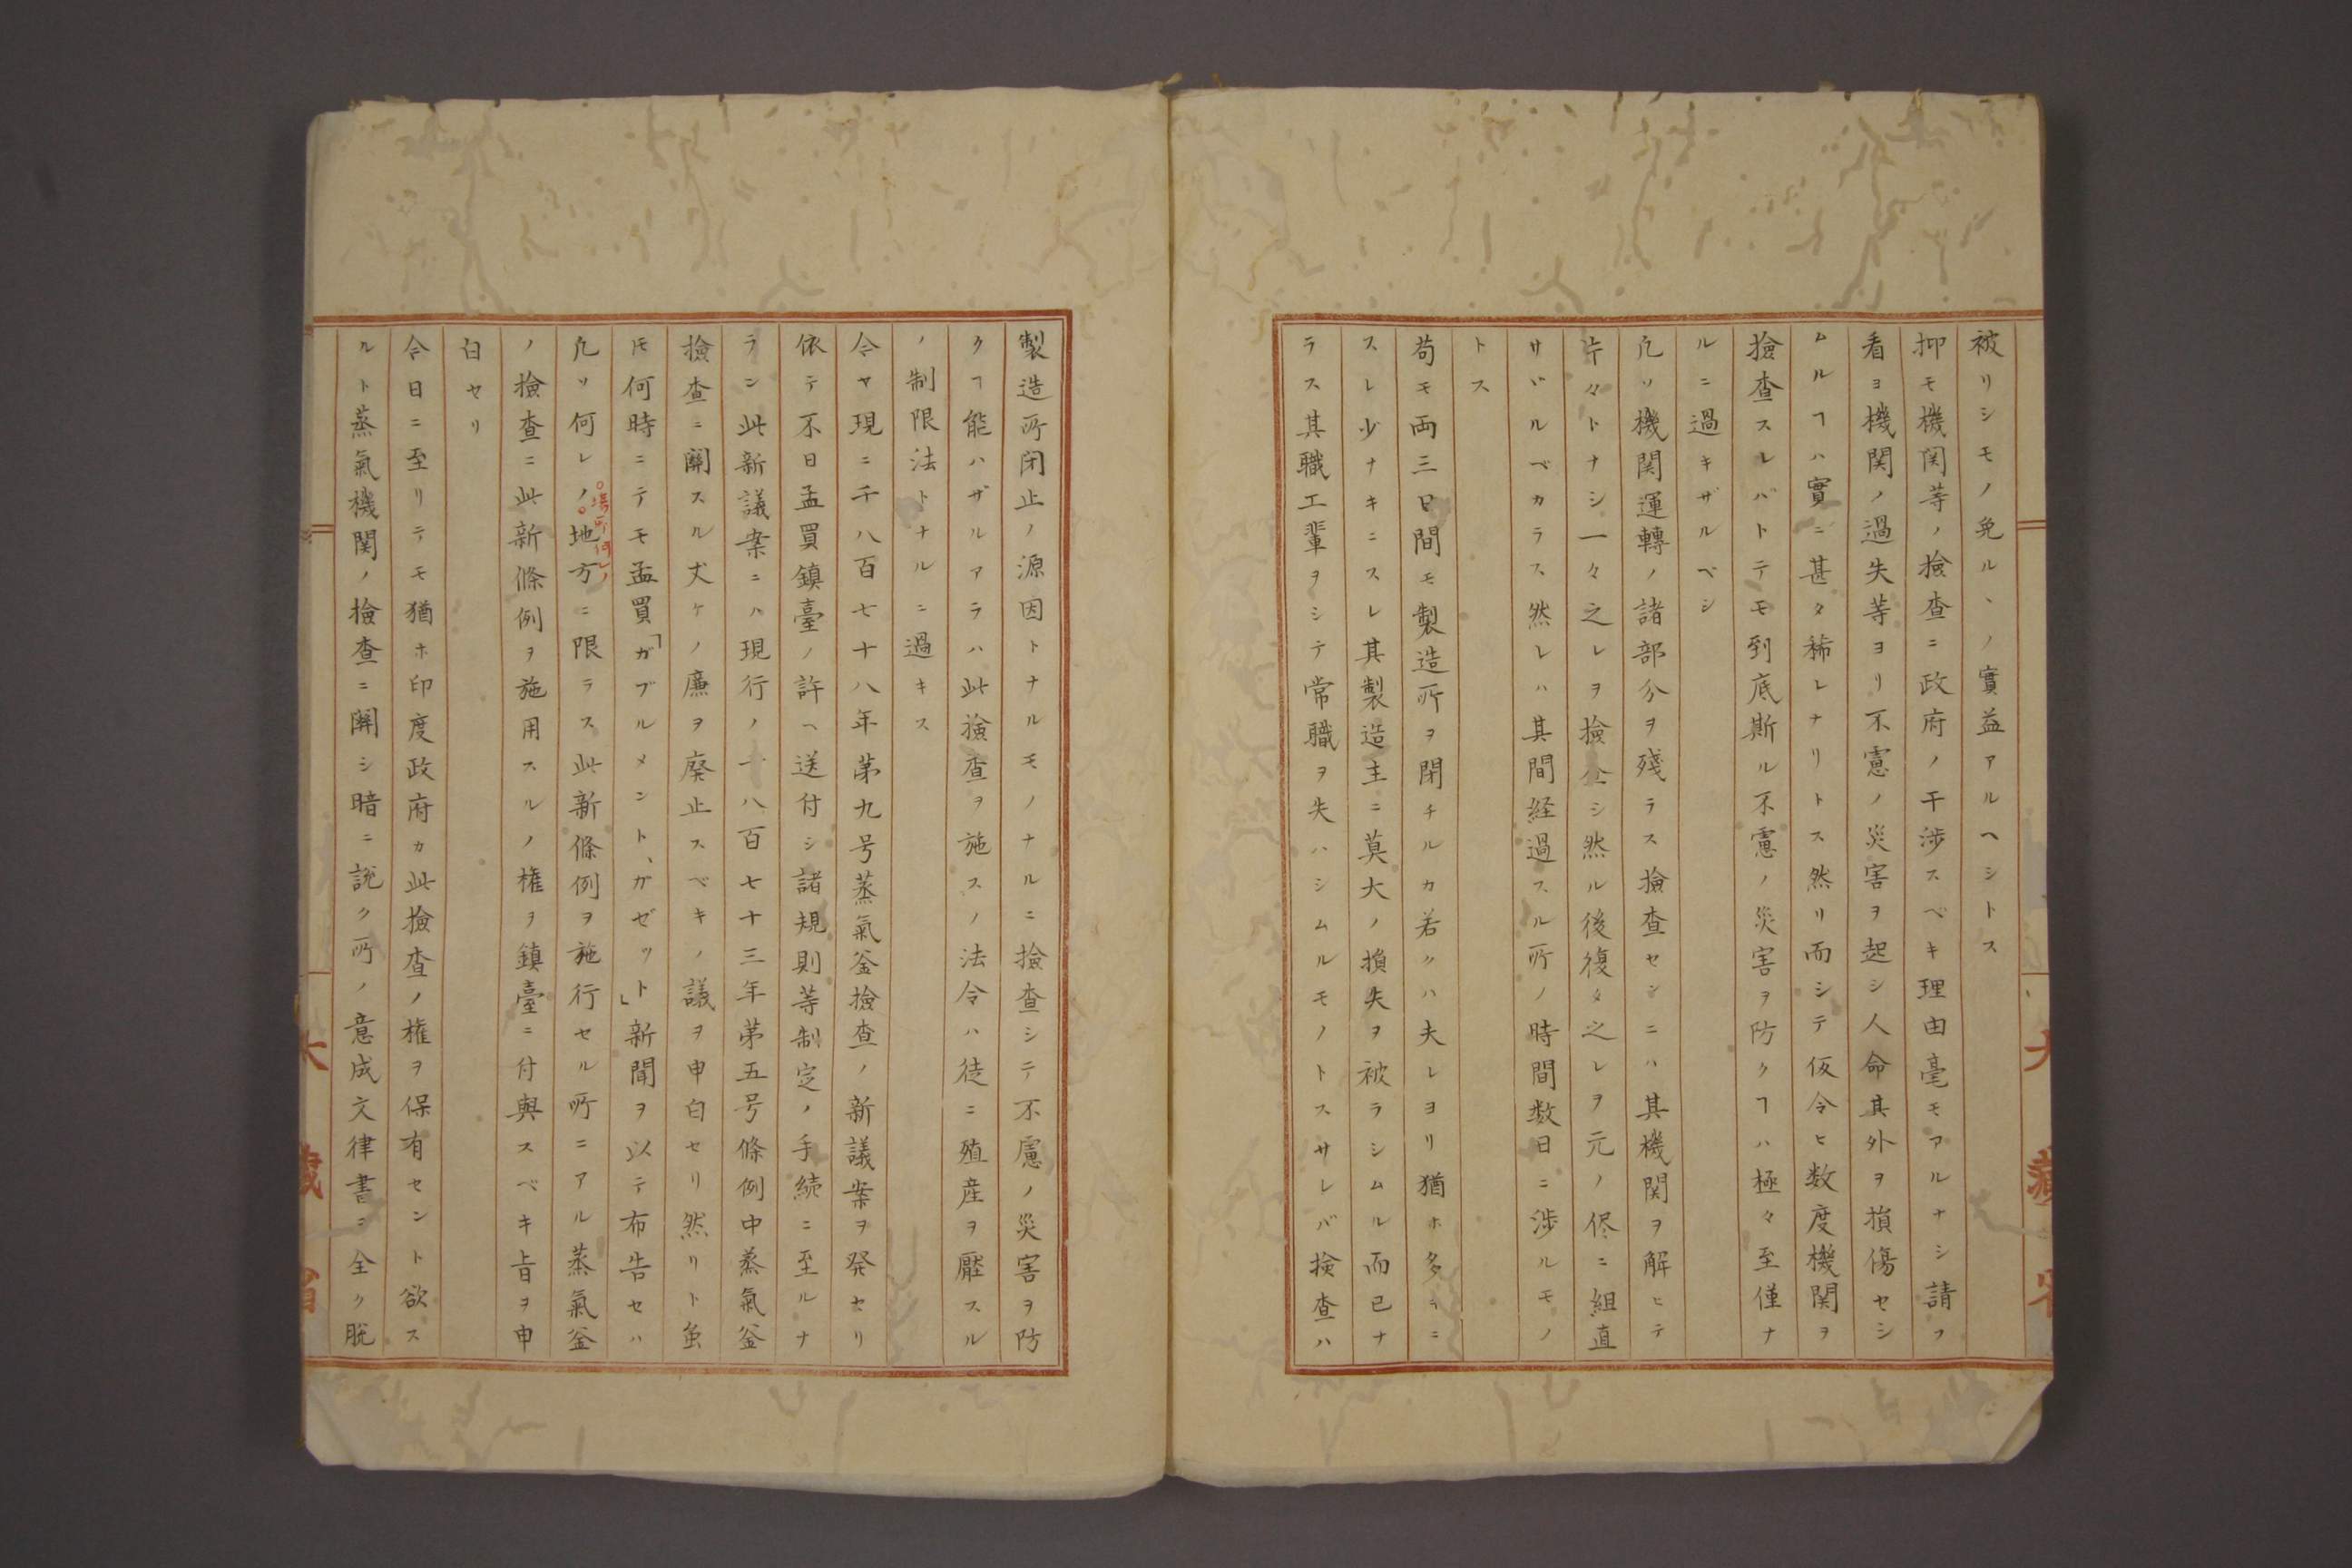 被リシモノ免ルヽノ實益アルヘシトス
抑モ機関等ノ撿査ニ政府ノ干渉スベキ理由毫モアルナシ請フ
看ヨ機関ノ過失等ヨリ不慮ノ災害ヲ起シ人命其外ヲ損傷セシ
ムルヿハ實ニ甚タ稀レナリトス然リ而シテ仮令ヒ数度機関ヲ
撿査スレバトテモ到底斯ル不慮ノ災害ヲ防クヿハ極々至僅ナ
ルニ過キザルベシ
凡ソ機関運轉ノ諸部分ヲ殘ラス撿査センニハ其機関ヲ解ヒテ
片々トナシ一々之レヲ撿シ然ル後復タ之レヲ元ノ侭ニ組直
サヾルベカラス然レハ其間経過スル所ノ時間数日ニ渉ルモノ
トス
苟モ両三日間モ製造所ヲ閉チルカ若クハ夫レヨリ猶ホ多キニ
スレ少ナキニスレ其製造主ニ莫大ノ損失ヲ被ラシムル而已ナ
ラス其職工輩ヲシテ常職ヲ失ハシムルモノトスサレバ撿査ハ
製造所閉止ノ源因トナルモノナルニ撿査シテ不慮ノ災害ヲ防
クヿ能ハザルアラハ此撿査ヲ施スノ法令ハ徒ニ殖産ヲ壓スル
ノ制限法トナルニ過キス
今ヤ現ニ千八百七十八年第九号蒸氣釜撿査ノ新議案ヲ発セリ
依テ不日孟買鎮臺ノ許ヘ送付シ諸規則等制定ノ手続ニ至ルナ
ラン此新議案ニハ現行ノ千八百七十三年第五号條例中蒸氣釜
撿査ニ關スル丈ケノ廉ヲ廃止スベキノ議ヲ申白セリ然リト虽
𪜈何時ニテモ孟買「ガブルメント、ガゼット」新聞ヲ以テ布告セハ
凡ソ何レノ○地方ニ限ラス此新條例ヲ施行セル所ニアル蒸氣釜
○場所何レノ
ノ撿査ニ此新條例ヲ施用スルノ権ヲ鎮臺ニ付與スベキ旨ヲ申
白セリ
今日ニ至リテモ猶ホ印度政府カ此撿査ノ権ヲ保有セント欲ス
ルト蒸氣機関ノ撿査ニ關シ暗ニ說ク所ノ意成文律書ニ全ク脫
大藏省